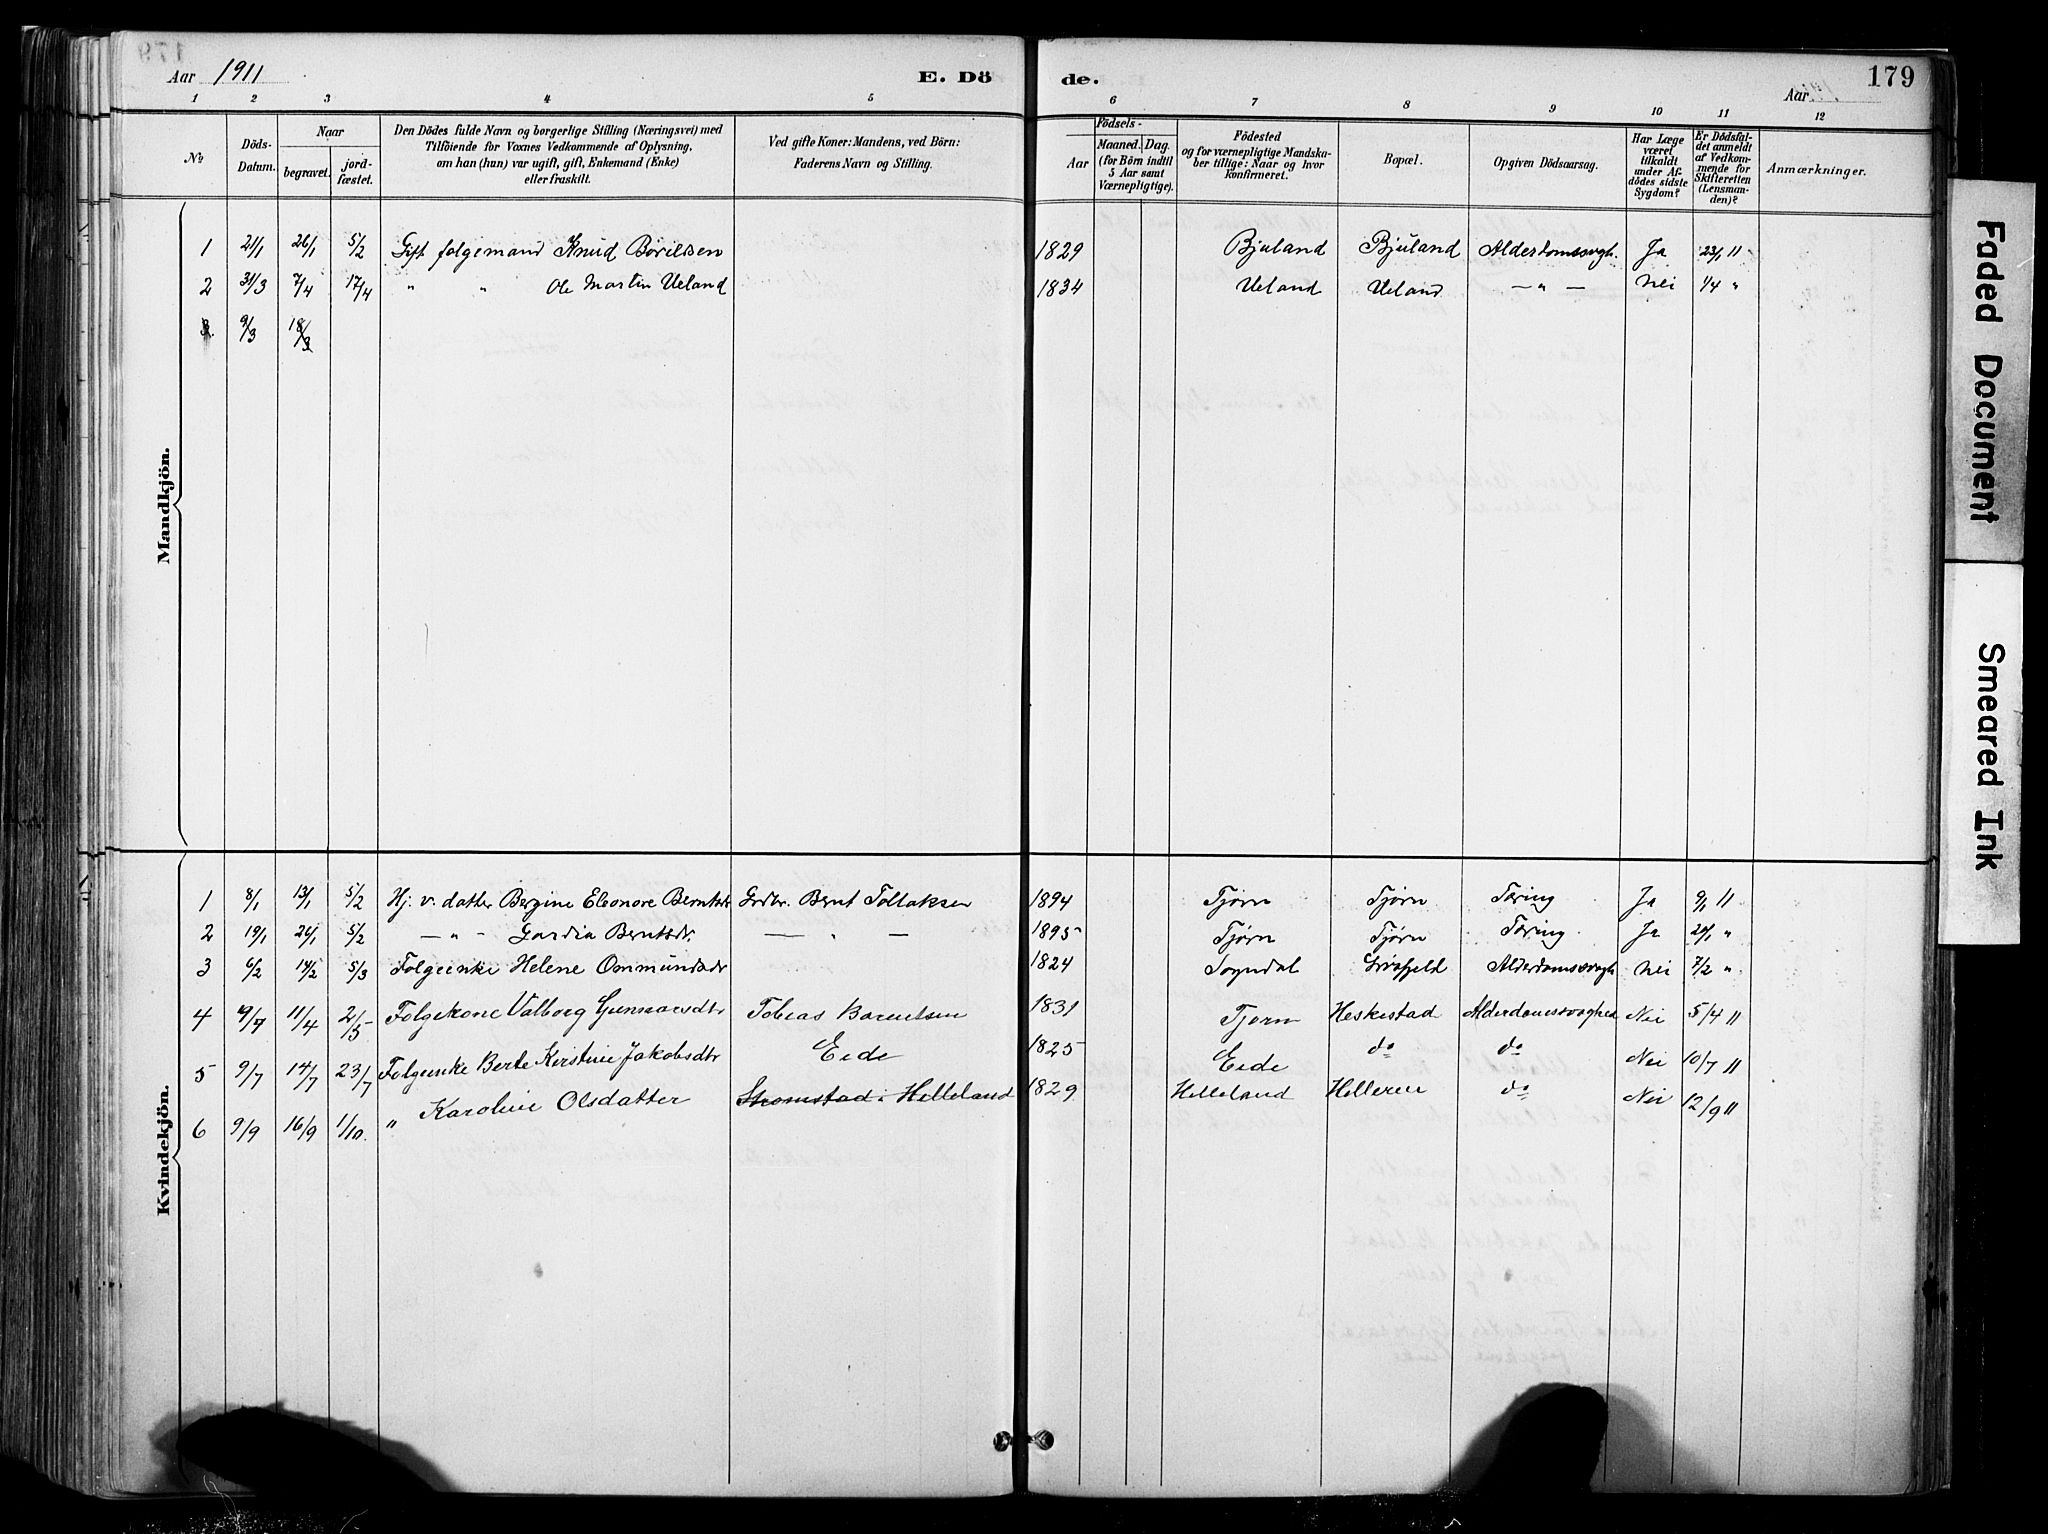 179
Aar 1911 E. Dö de. Aar
1 2 3 4 5 6 7 8 9 10 11 12
No
Döds-
Datum.
Naar
begravet.
jord-
fæstet.
Den Dödes fulde Navn og borgerlige Stilling (Næringsvei) med
Tilföiende for Voxnes Vedkommende af Oplysning,
om han (hun) var ugift, gift, Enkemand (Enke)
eller fraskilt.
Ved gifte Koner: Mandens, ved Börn:
Faderens Navn og Stilling.
Födsels-
Aar
Maaned. Dag.
(for Börn indtil
5 Aar samt
Værnepligtige).
Födested
og for værnepligtige Mandska-
ber tillige: Naar og hvor
konfirmeret.
Bopæl.
Opgiven Dödsaarsag.
Har Læge
været
tilkaldt
under Af-
dödes sidste
Sygdom?
Er Dödsfal-
det anmeldt
af Vedkom-
mende for
Skifteretten
(Lensman-
den)?
Anmærkninger.
Mandkjön.
1 21/1 26/1 5/2 Gift folgemand Knud Børildsen 1829 Bjuland Bjuland Alderdomssvagh. Ja 23/1 11
2 31/3 7/4 17/4 " " Ole Martin Ueland 1834 Ueland Ueland — " — Nei 1/4 "
3. 9/3 18/3
Kvindekjön.
1 8/1 13/1 5/2 Hj. v. datter Bergine Eleonore Berntsdr Grdbr. Bernt Tollaksen 1894 Tjørn Tjørn Tæring Ja 9/1 11
2 19/1 26/1 5/2 — " — Gardia Berntsdr. — " — 1895 Tjørn Tjørn Tæring Ja 20/1 "
3 6/2 14/2 5/3 Folgeenke Helene Ommundsdr 1824 Sogndal Alderdomssvagh Nei 7/2 "
4 11/4 2/5 Folgekone Valborg Gunnarsdtr Tobias Barentsen 1831 Tjørn Heskestad Alderdomssvaghed Nei 5/4 11
5 9/7 14/7 23/7 Folgeenke Berte Kirstine Jakobsdtr Eide 1825 Eide do do Nei 10/7 11
6 9/9 16/9 1/10. " Karoline Olsdatter Stromstad i Helleland 1829 Helleland Helleren do Nei 12/9 11
Faded Document
Smeared Ink